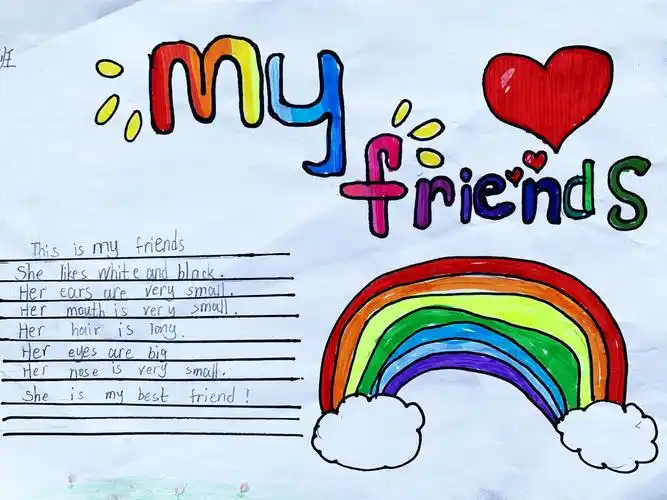 班
My
friends
This is my friends
She likes white and black.
Her ears are very small.
Her mouth is very small.
Her hair is long.
Her eyes are big
Her nose is very small.
She is my best friend!